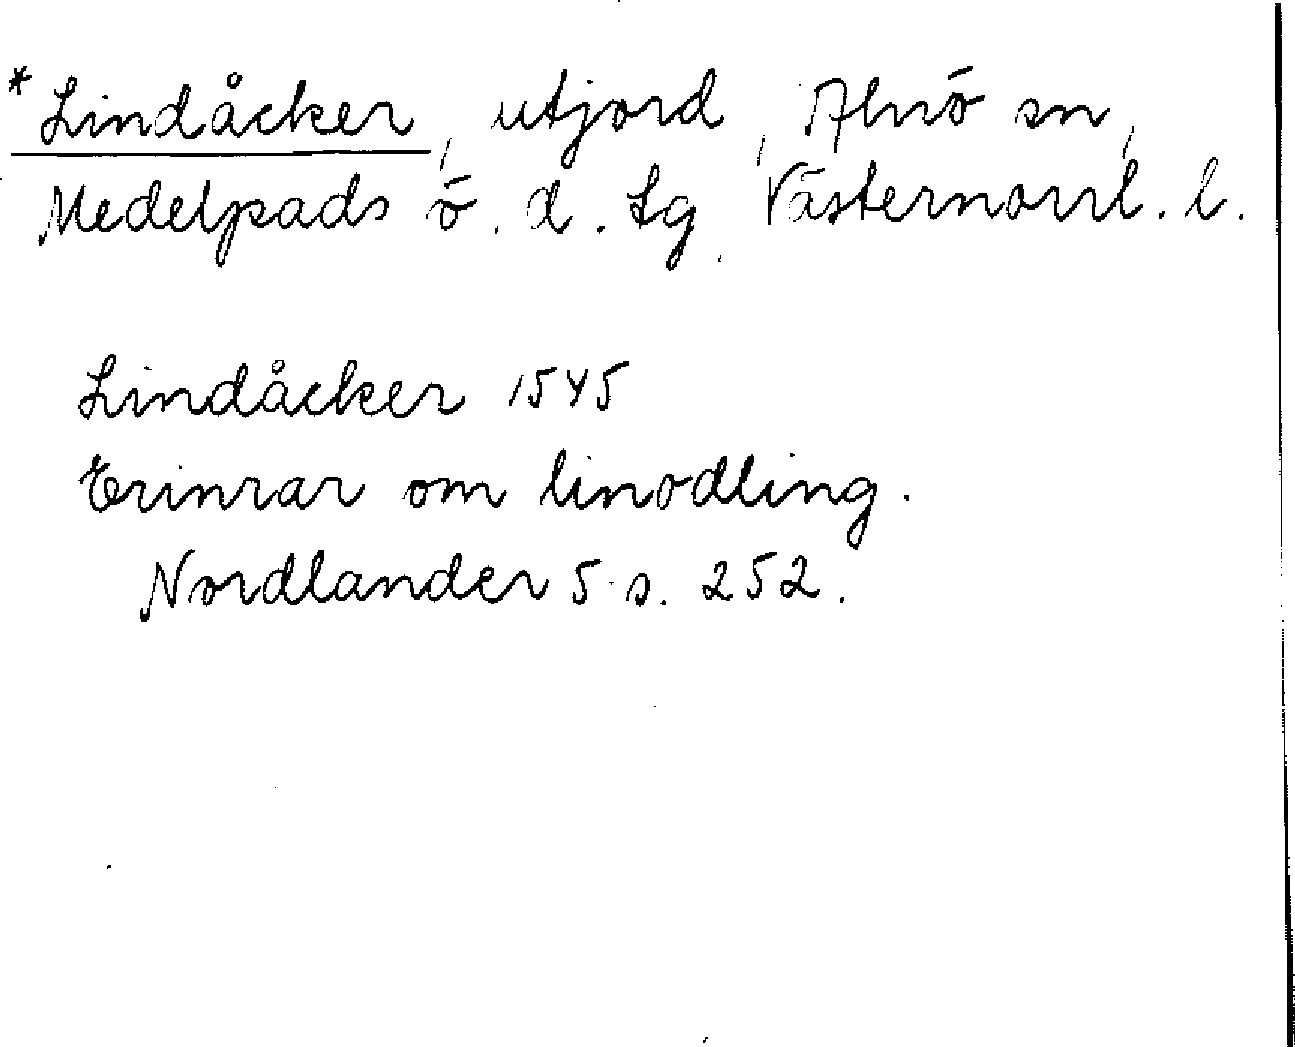 *Lindåcker, utjord, Alnö sn,
Medelpads ö. d. tg, Västernorrl. l.
Lindåcker 1545
Erinrar om linodling.
Nordlander 5 s. 252.